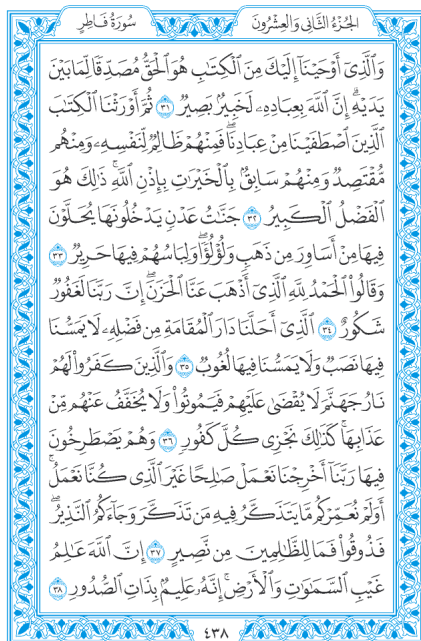 سُورَةُ فَاطِرٍ
الجُزْءُ الثَّانِي وَالعِشْرُونَ
وَٱلَّذِيٓ أَوۡحَيۡنَآ إِلَيۡكَ مِنَ ٱلۡكِتَٰبِ هُوَ ٱلۡحَقُّ مُصَدِّقٗا لِّمَا بَيۡنَ
يَدَيۡهِۗ إِنَّ ٱللَّهَ بِعِبَادِهِۦ لَخَبِيرُۢ بَصِيرٞ ٣١ ثُمَّ أَوۡرَثۡنَا ٱلۡكِتَٰبَ
ٱلَّذِينَ ٱصۡطَفَيۡنَا مِنۡ عِبَادِنَاۖ فَمِنۡهُمۡ ظَالِمٞ لِّنَفۡسِهِۦ وَمِنۡهُم
مُّقۡتَصِدٞ وَمِنۡهُمۡ سَابِقُۢ بِٱلۡخَيۡرَٰتِ بِإِذۡنِ ٱللَّهِۚ ذَٰلِكَ هُوَ
ٱلۡفَضۡلُ ٱلۡكَبِيرُ ٣٢ جَنَّٰتُ عَدۡنٖ يَدۡخُلُونَهَا يُحَلَّوۡنَ
فِيهَا مِنۡ أَسَاوِرَ مِن ذَهَبٖ وَلُؤۡلُؤٗاۖ وَلِبَاسُهُمۡ فِيهَا حَرِيرٞ ٣٣
وَقَالُواْ ٱلۡحَمۡدُ لِلَّهِ ٱلَّذِيٓ أَذۡهَبَ عَنَّا ٱلۡحَزَنَۖ إِنَّ رَبَّنَا لَغَفُورٞ
شَكُورٌ ٣٤ ٱلَّذِيٓ أَحَلَّنَا دَارَ ٱلۡمُقَامَةِ مِن فَضۡلِهِۦ لَا يَمَسُّنَا
فِيهَا نَصَبٞ وَلَا يَمَسُّنَا فِيهَا لُغُوبٞ ٣٥ وَٱلَّذِينَ كَفَرُواْ لَهُمۡ
نَارُ جَهَنَّمَ لَا يُقۡضَىٰ عَلَيۡهِمۡ فَيَمُوتُواْ وَلَا يُخَفَّفُ عَنۡهُم مِّنۡ
عَذَابِهَاۚ كَذَٰلِكَ نَجۡزِي كُلَّ كَفُورٖ ٣٦ وَهُمۡ يَصۡطَرِخُونَ
فِيهَا رَبَّنَآ أَخۡرِجۡنَا نَعۡمَلۡ صَٰلِحًا غَيۡرَ ٱلَّذِي كُنَّا نَعۡمَلُۚ
أَوَلَمۡ نُعَمِّرۡكُم مَّا يَتَذَكَّرُ فِيهِ مَن تَذَكَّرَ وَجَآءَكُمُ ٱلنَّذِيرُۖ
فَذُوقُواْ فَمَا لِلظَّٰلِمِينَ مِن نَّصِيرٍ ٣٧ إِنَّ ٱللَّهَ عَٰلِمُ
غَيۡبِ ٱلسَّمَٰوَٰتِ وَٱلۡأَرۡضِۚ إِنَّهُۥ عَلِيمُۢ بِذَاتِ ٱلصُّدُورِ ٣٨
٤٣٨